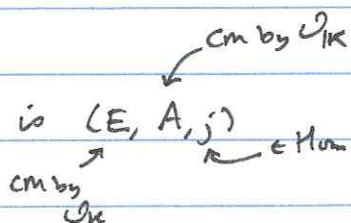 cm by 𝒪_K
is (E, A, j) ∈ Hom
cm by
𝒪_k